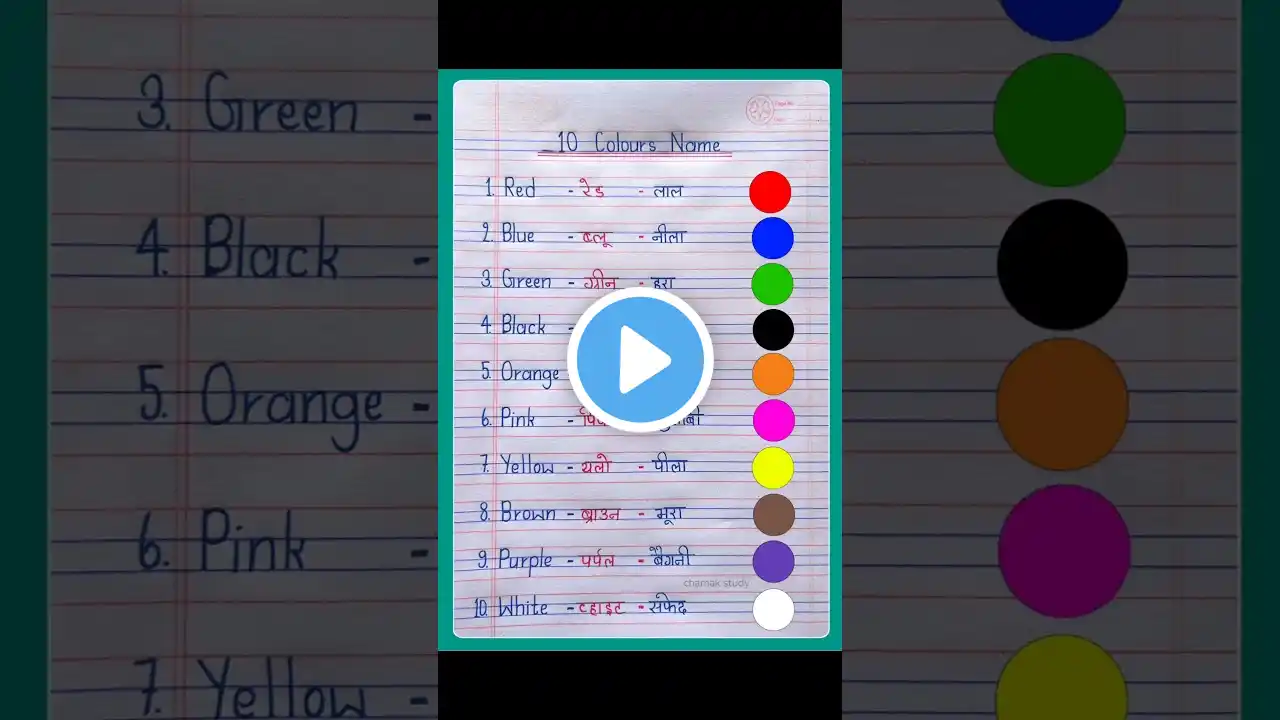 10 Colours Name
1. Red - रेड - लाल
2. Blue - ब्लू - नीला
3. Green - ग्रीन - हरा
4. Black -
5. Orange
6. Pink -
7. Yellow - यलो - पीला
8. Brown - ब्राउन - भूरा
9. Purple - पर्पल - बैंगनी
chamak study
10. White - व्हाइट - सफेद
3. Green -
4. Black -
5. Orange -
6. Pink -
7. Yellow -